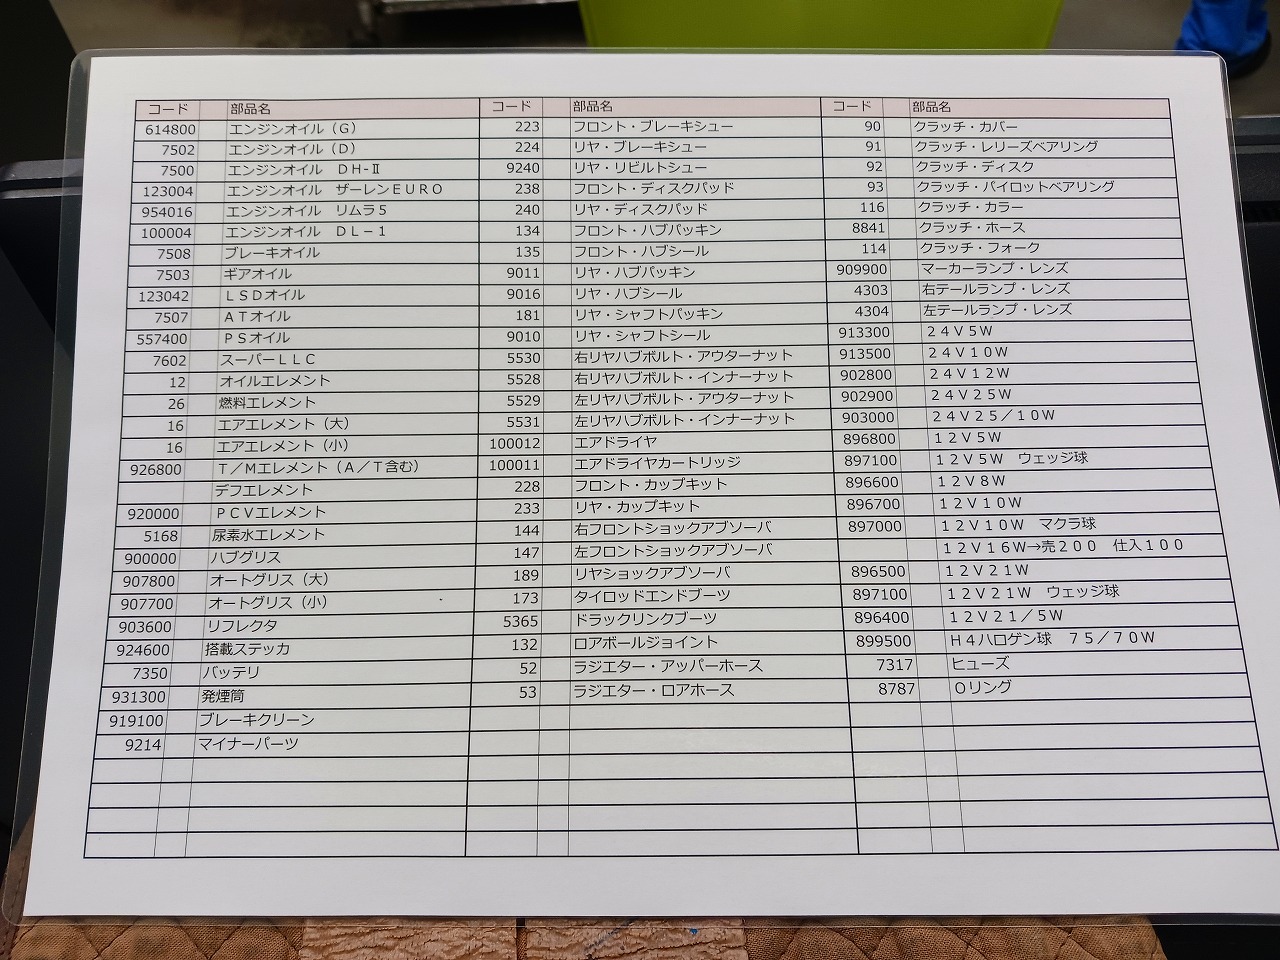 コード 部品名 コード 部品名 コード 部品名
614800 エンジンオイル（Ｇ） 223 フロント・ブレーキシュー 90 クラッチ・カバー
7502 エンジンオイル（Ｄ） 224 リヤ・ブレーキシュー 91 クラッチ・レリーズベアリング
7500 エンジンオイル　DH-Ⅱ 9240 リヤ・リビルトシュー 92 クラッチ・ディスク
123004 エンジンオイル　ザーレンＥＵＲＯ 238 フロント・ディスクパッド 93 クラッチ・パイロットベアリング
954016 エンジンオイル　リムラ５ 240 リヤ・ディスクパッド 116 クラッチ・カラー
100004 エンジンオイル　ＤＬ－１ 134 フロント・ハブパッキン 8841 クラッチ・ホース
7508 ブレーキオイル 135 フロント・ハブシール 114 クラッチ・フォーク
7503 ギアオイル 9011 リヤ・ハブパッキン 909900 マーカーランプ・レンズ
123042 ＬＳＤオイル 9016 リヤ・ハブシール 4303 右テールランプ・レンズ
7507 ＡＴオイル 181 リヤ・シャフトパッキン 4304 左テールランプ・レンズ
557400 ＰＳオイル 9010 リヤ・シャフトシール 913300 ２４Ｖ５Ｗ
7602 スーパーＬＬＣ 5530 右リヤハブボルト・アウターナット 913500 ２４Ｖ１０Ｗ
12 オイルエレメント 5528 右リヤハブボルト・インナーナット 902800 ２４Ｖ１２Ｗ
26 燃料エレメント 5529 左リヤハブボルト・アウターナット 902900 ２４Ｖ２５Ｗ
16 エアエレメント（大） 5531 左リヤハブボルト・インナーナット 903000 ２４Ｖ２５／１０Ｗ
16 エアエレメント（小） 100012 エアドライヤ 896800 １２Ｖ５Ｗ
926800 Ｔ／Ｍエレメント（Ａ／Ｔ含む） 100011 エアドライヤカートリッジ 897100 １２Ｖ５Ｗ　ウェッジ球
デフエレメント 228 フロント・カップキット 896600 １２Ｖ８Ｗ
920000 ＰＣＶエレメント 233 リヤ・カップキット 896700 １２Ｖ１０Ｗ
5168 尿素水エレメント 144 右フロントショックアブソーバ 897000 １２Ｖ１０Ｗ　マクラ球
900000 ハブグリス 147 左フロントショックアブソーバ １２Ｖ１６Ｗ→売２００　仕入１００
907800 オートグリス（大） 189 リヤショックアブソーバ 896500 １２Ｖ２１Ｗ
907700 オートグリス（小） 173 タイロッドエンドブーツ 897100 １２Ｖ２１Ｗ　ウェッジ球
903600 リフレクタ 5365 ドラックリンクブーツ 896400 １２Ｖ２１／５Ｗ
924600 搭載ステッカ 132 ロアボールジョイント 899500 Ｈ４ハロゲン球　７５／７０Ｗ
7350 バッテリ 52 ラジエター・アッパーホース 7317 ヒューズ
931300 発煙筒 53 ラジエター・ロアホース 8787 Ｏリング
919100 ブレーキクリーン
9214 マイナーパーツ